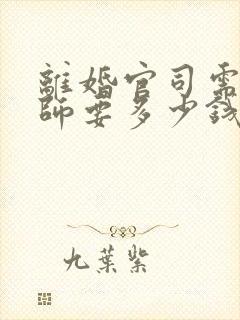 離婚官司需
師要多少錢
九葉紫